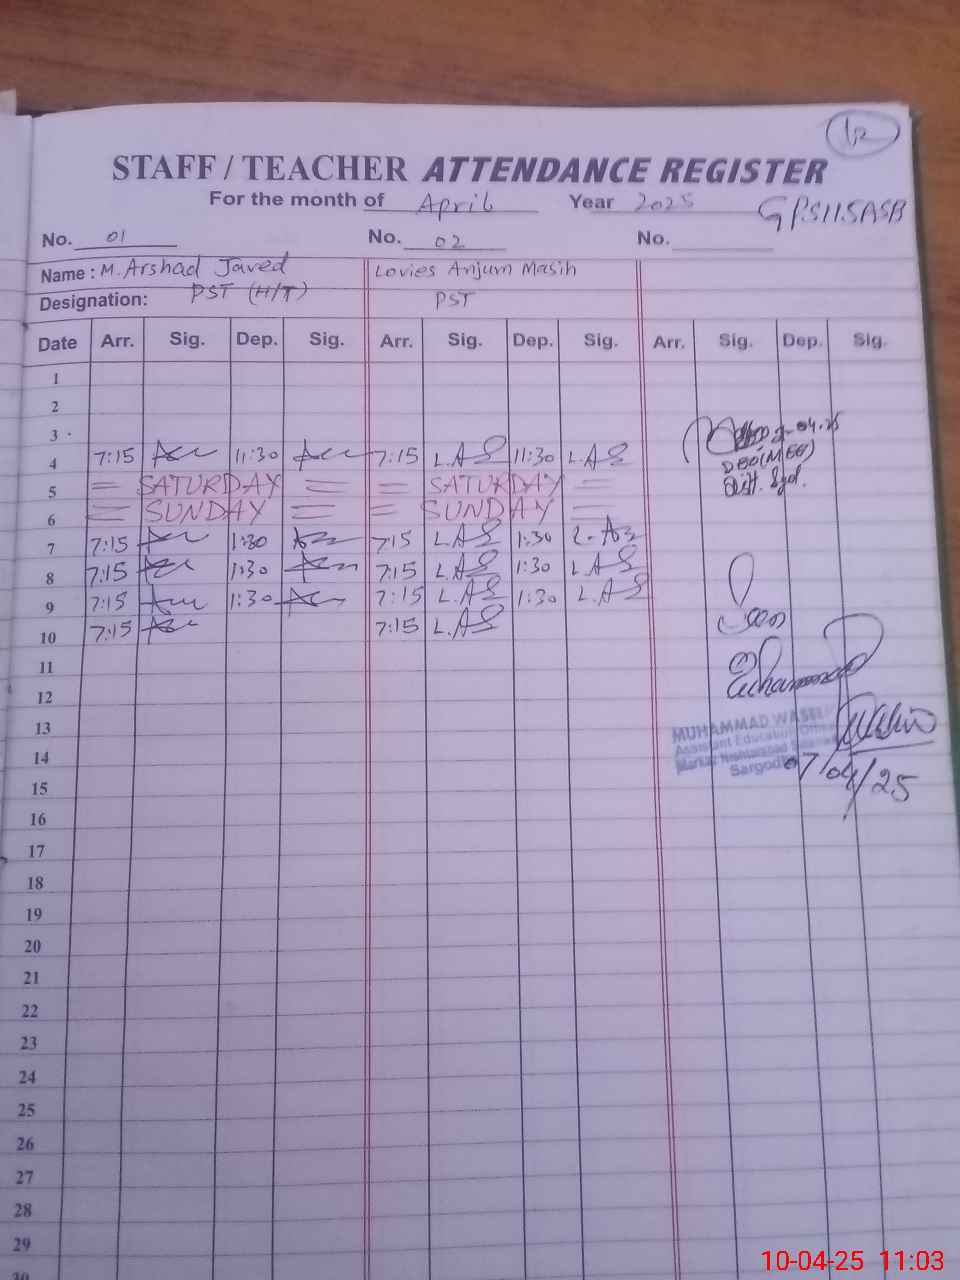 STAFF / TEACHER ATTENDANCE REGISTER
For the month of April Year 2025
GPS 115ASB
No. 01 No. 02 No.
Name : M. Arshad Javed Lovies Anjum Masih
Designation: PST (H/T) PST
Date Arr. Sig. Dep. Sig. Arr. Sig. Dep. Sig. Arr. Sig. Dep. Sig.
1
2
3
4 7:15 11:30 7:15 L.AS 11:30 L.AS
DEO(MEE)
5 = SATURDAY = = SATURDAY =
6 = SUNDAY = = SUNDAY =
7 7:15 1:30 7:15 L.AS 1:30 L.AS
8 7:15 1:30 7:15 L.AS 1:30 L.AS
9 7:15 1:30 7:15 L.AS 1:30 L.AS
10 7:15 7:15 L.AS
11
12
13
MUHAMMAD
Assistant Education
14
Markaz
Sargodha
07/04/25
15
16
17
18
19
20
21
22
23
24
25
26
27
28
29
30
10-04-25 11:03